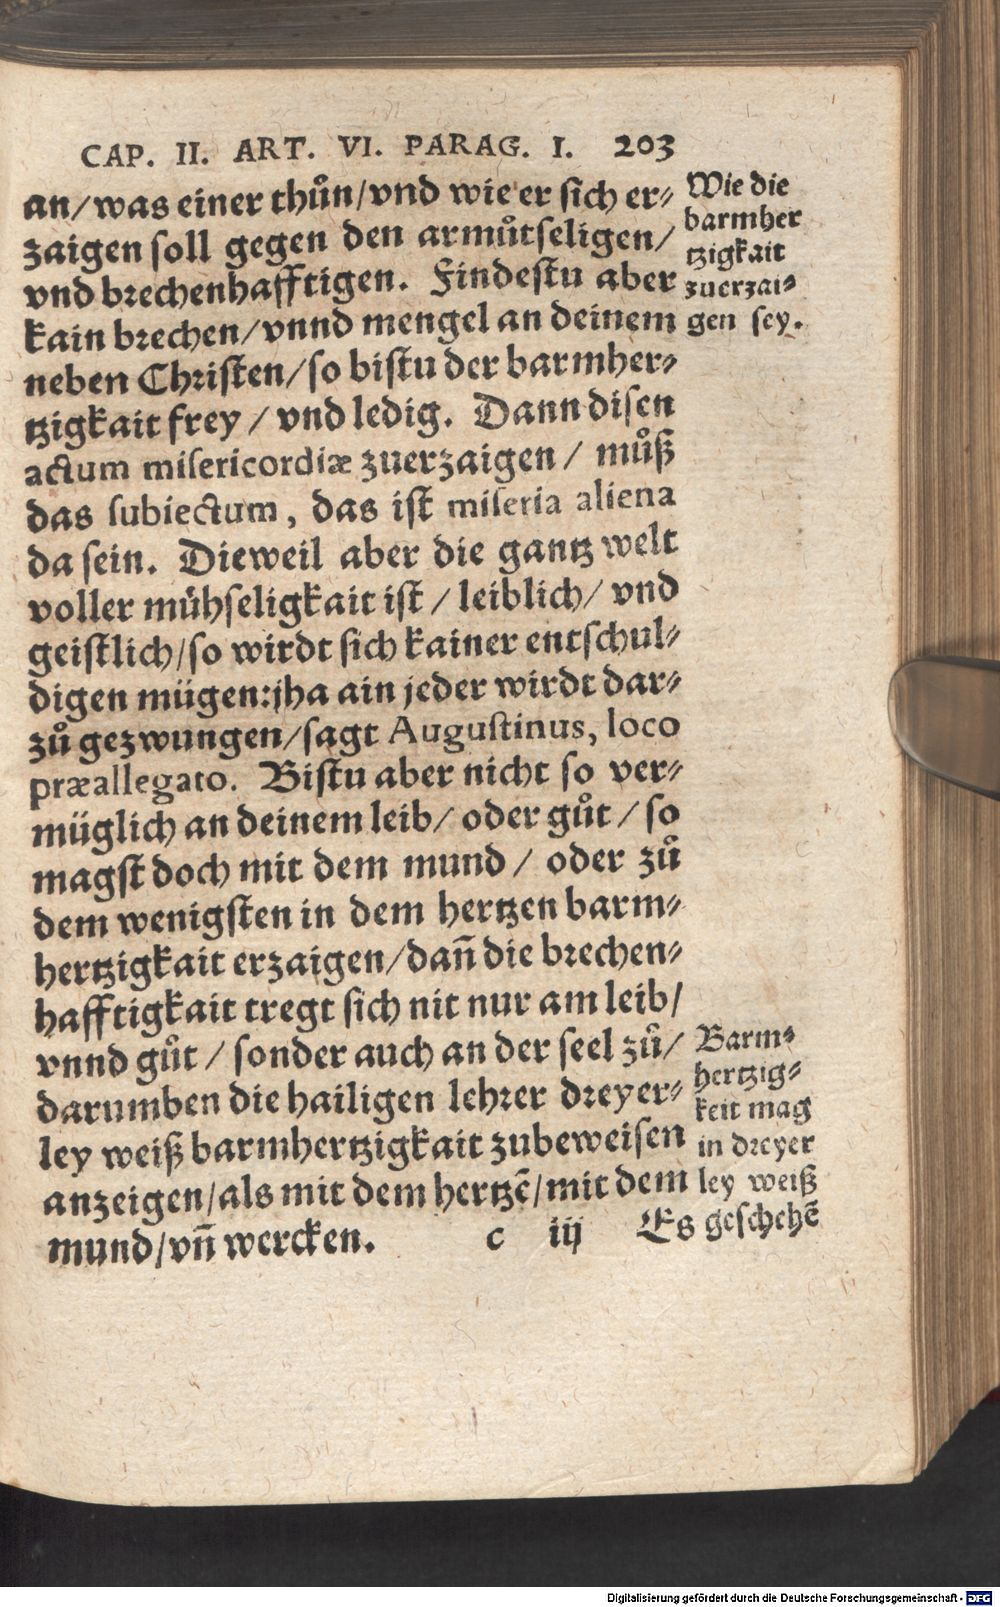 CAP. II. ART. VI. PARAG. I. 203
an/was einer thůn/vnd wie er sich er⸗
zaigen soll gegen den armůtseligen/
vnd brechenhafftigen. Findestu aber
kain brechen/vnnd mengel an deinem
neben Christen/so bistu der barmher⸗
tzigkait frey/vnd ledig. Dann disen
actum misericordiæ zuerzaigen/ můß
das subiectum, das ist miseria aliena
da sein. Dieweil aber die gantz welt
voller mühseligkait ist/leiblich/vnd
geistlich/so wirdt sich kainer entschul⸗
digen mügen:jha ain jeder wirdt dar⸗
zů gezwungen/sagt Augustinus, loco
præallegato. Bistu aber nicht so ver⸗
müglich an deinem leib/ oder gůt/so
magst doch mit dem mund/ oder zů
dem wenigsten in dem hertzen barm⸗
hertzigkait erzaigen/dañ die brechen⸗
hafftigkait tregt sich nit nur am leib/
vnnd gůt/sonder auch an der seel zů/
darumben die hailigen lehrer dreyer⸗
ley weiß barmhertzigkait zubeweisen
anzeigen/als mit dem hertzẽ/mit dem
mund/vñ wercken.
c iij Es geschehẽ
Wie die
barmher
tzigkait
zuerzai⸗
gen sey.
Barm⸗
hertzig⸗
keit mag
in dreyer
ley weiß
Digitalisierung gefördert durch die Deutsche Forschungsgemeinschaft - DFG